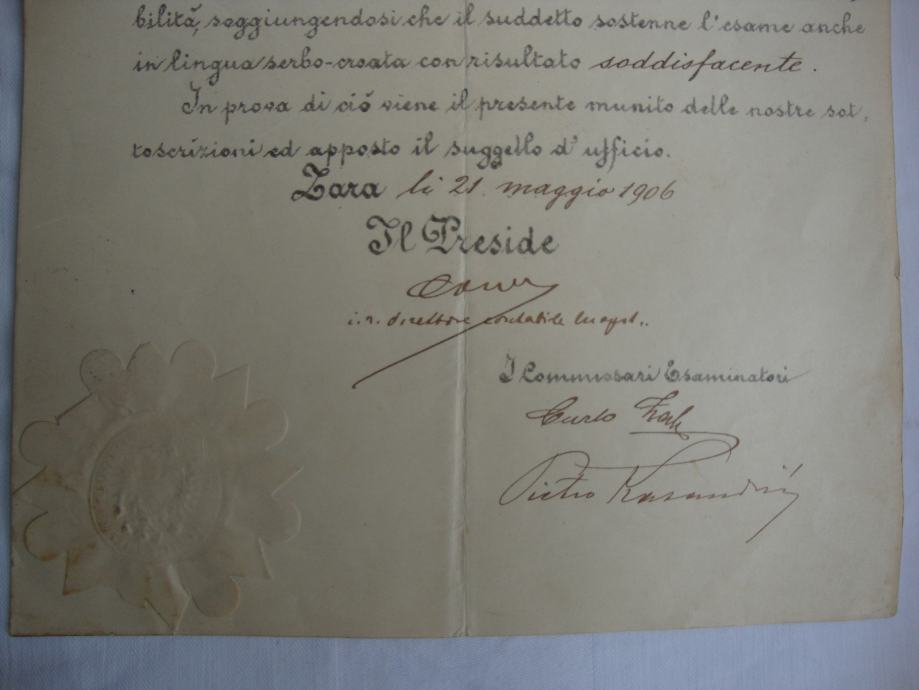 bilità, soggiungendosi che il suddetto sostenne l'esame anche
in lingua serbo-croata con risultato soddisfacente.
In prova di ciò viene il presente munito delle nostre sot,
toscrizioni ed apposto il suggello d'ufficio.
Zara li 21. maggio 1906
Il Preside
i. r. direttore contabile
I Commissari Esaminatori
Carlo
Pietro Kasandrić